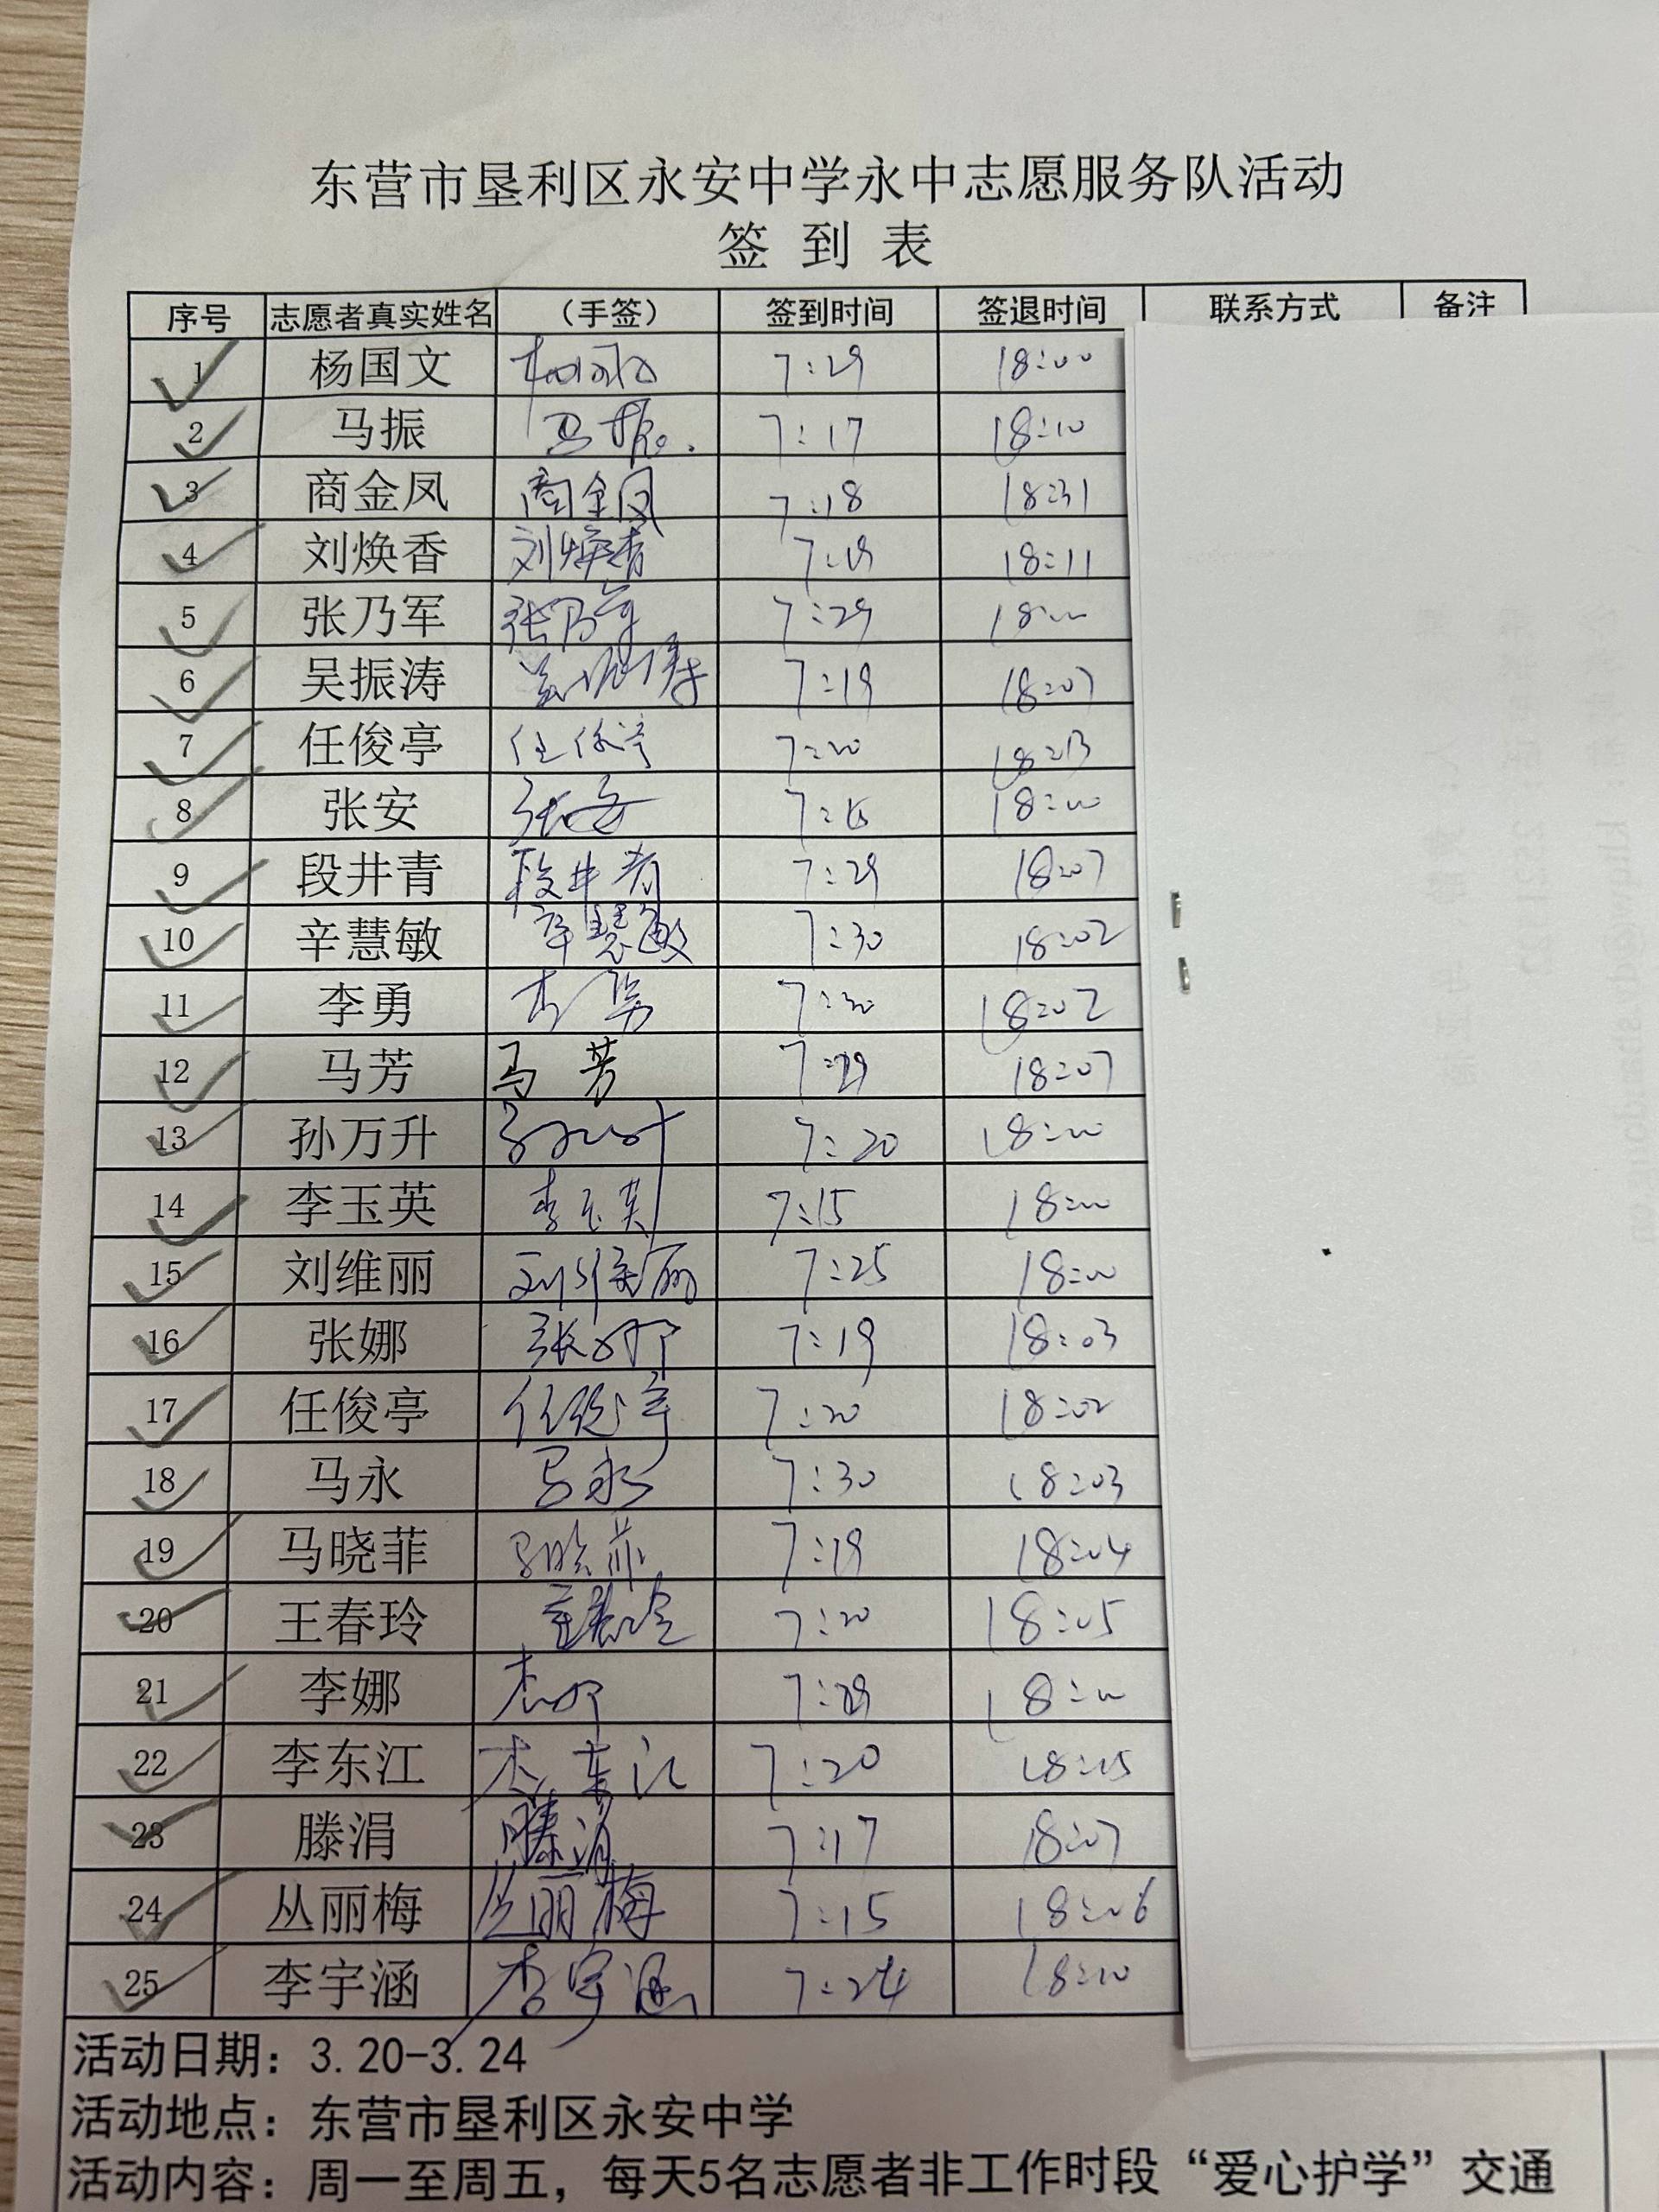 东营市垦利区永安中学永中志愿服务队活动
签 到 表
序号 志愿者真实姓名 （手签） 签到时间 签退时间 联系方式 备注
1 杨国文 7:29 18:00
2 马振 马振 7:17 18:10
3 商金凤 商金凤 7:18 18:31
4 刘焕香 刘焕香 7:19 18:11
5 张乃军 张乃军 7:29 18:00
6 吴振涛 吴振涛 7:19 18:07
7 任俊亭 任俊亭 7:20 18:13
8 张安 张安 18:00
9 段井青 段井青 7:29 18:07
10 辛慧敏 辛慧敏 7:30 18:02
11 李勇 李勇 7:30 18:02
12 马芳 马芳 7:29 18:07
13 孙万升 孙万升 7:20 18:00
14 李玉英 李玉英 7:15 18:00
15 刘维丽 刘维丽 7:25 18:00
16 张娜 张娜 7:19 18:03
17 任俊亭 任俊亭 7:20 18:02
18 马永 马永 7:30 18:03
19 马晓菲 马晓菲 7:19 18:04
20 王春玲 王春玲 7:20 18:05
21 李娜 李娜 7:29 18:00
22 李东江 李东江 7:20 18:15
23 滕涓 滕涓 7:17 18:07
24 丛丽梅 丛丽梅 7:15 18:06
25 李宇涵 李宇涵 7:24 18:10
活动日期：3.20-3.24
活动地点：东营市垦利区永安中学
活动内容：周一至周五，每天5名志愿者非工作时段“爱心护学”交通